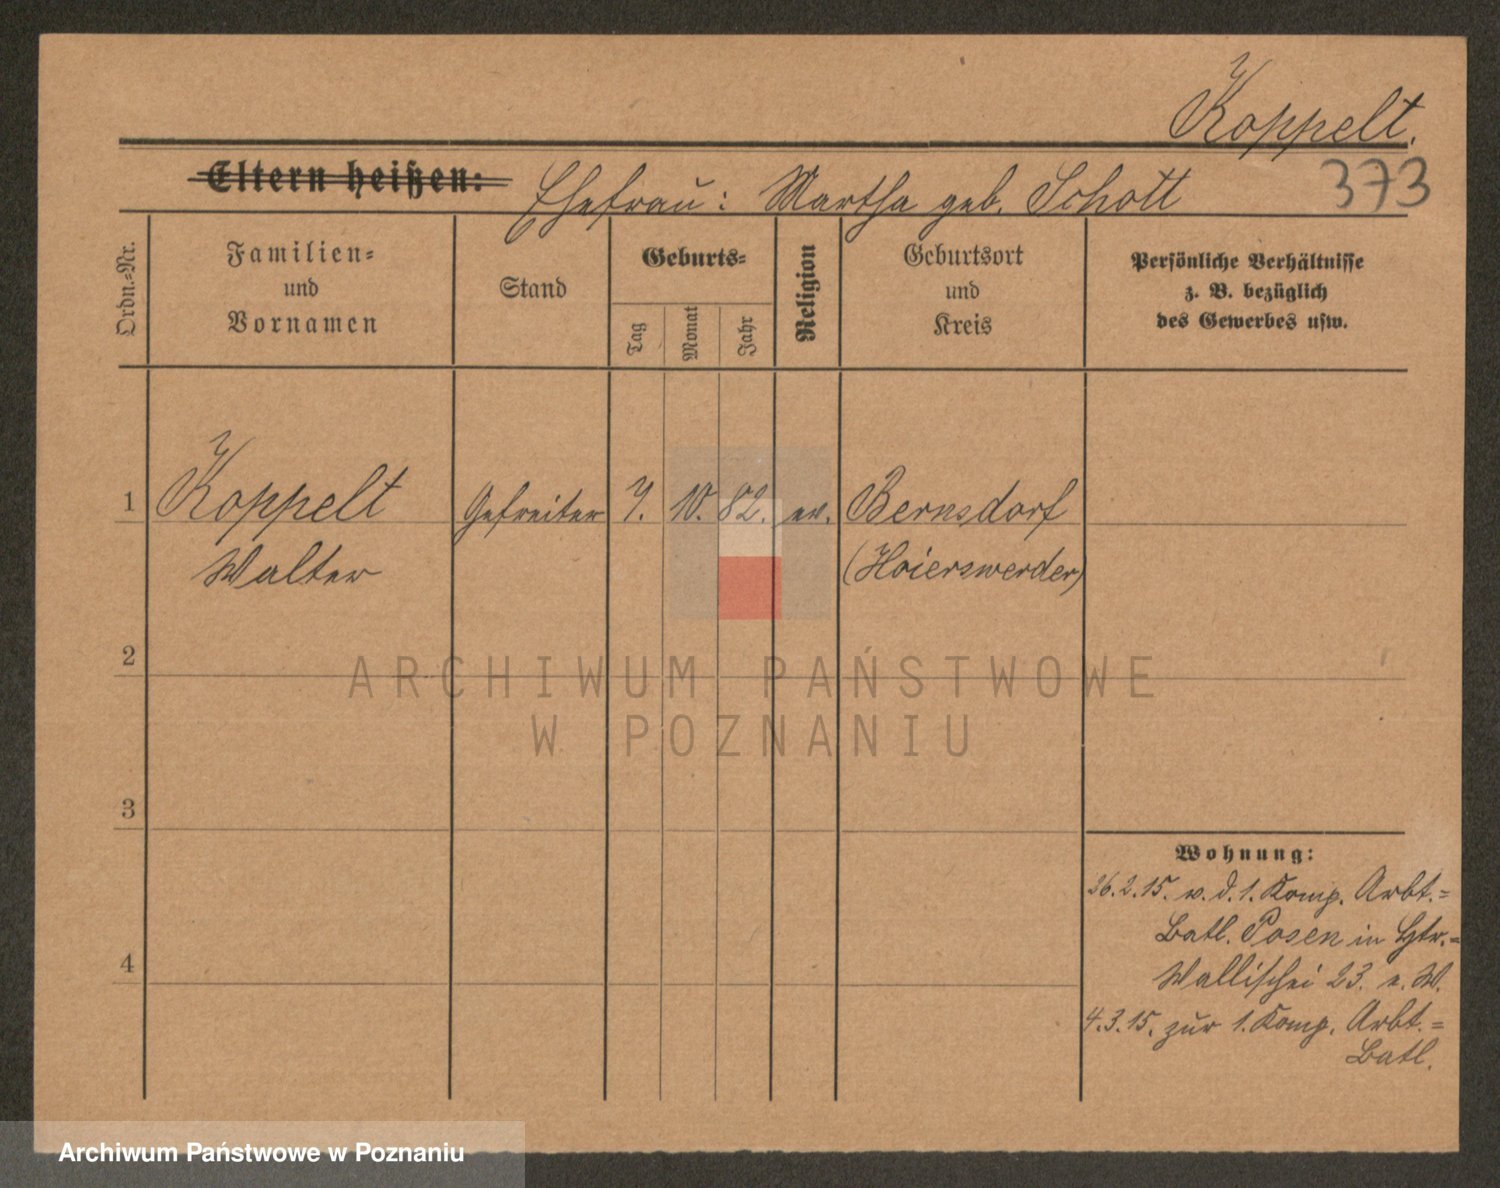 Koppelt.
373
Eltern heißen: Ehefrau: Martha geb. Schott
Ordn.-Nr.
Familien-
und
Vornamen
Stand
Geburts-
Tag
Monat
Jahr
Religion
Geburtsort
und
Kreis
Persönliche Verhältnisse
z. B. bezüglich
des Gewerbes usw.
1 Koppelt Gefreiter 7. 10. 82. ev. Bernsdorf
Walter (Hoierswerder)
2
3
4
Wohnung:
26.2.15. v. d. 1. Komp. Arbt.-
Batl. Posen in Htr.-
Wallischei 23. e. W.
4.3.15. zur 1. Komp. Arbt.-
Batl.
ARCHIWUM PAŃSTWOWE
W POZNANIU
Archiwum Państwowe w Poznaniu